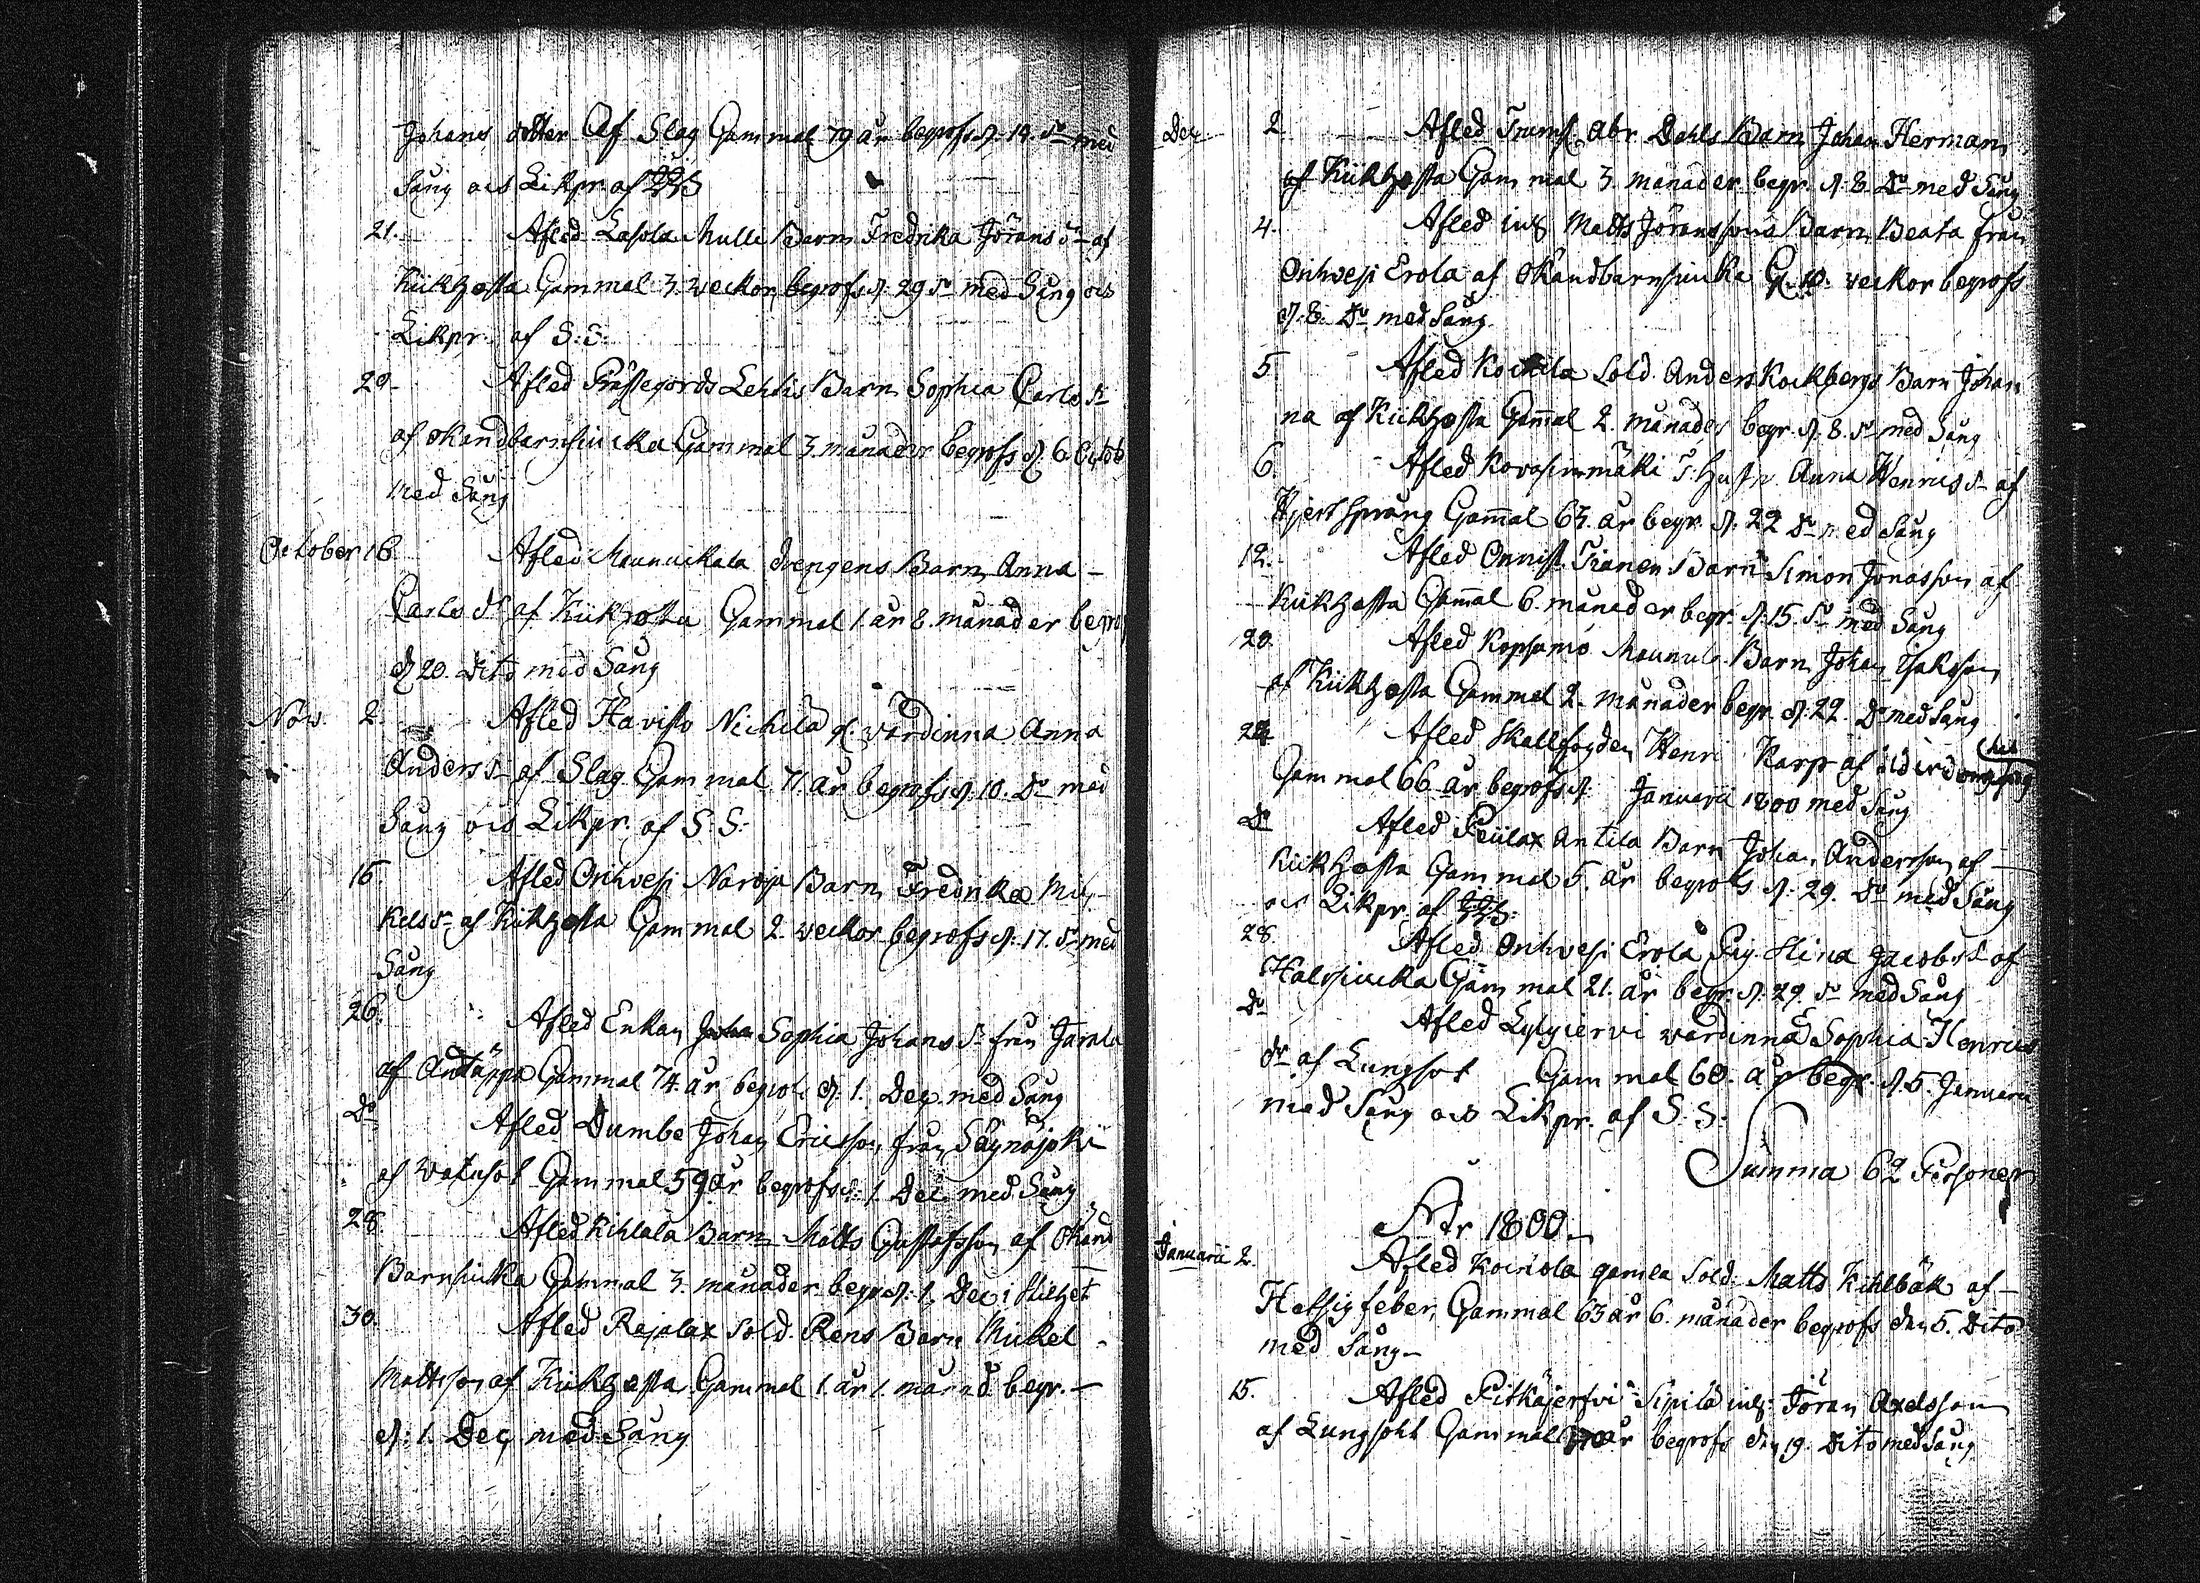 Johans dotter af Slag Gammal 79 år begrofs d. 14. do med
Sång och Likpr. af S:S:
21. Afled Lasola Mulli Barn Fredrika Jörans dr af
Kikhosta Gammal 3. weckor begrofs d. 29 do med Sång och
Likpr. af S:S:
29. Afled Prästegords Lehtis Barn Sophia Carls dr
af okandbarnsiucka Gammal 3. månader begrofs d. 6 October
med Sång
October 16. Afled drengens Barn Anna
Carls dr af Kikhosta Gammal 1. år 8. månader begrofs
d 20. Dito med Sång
Nov. 2. Afled Havisto Nickila gl. värdinna Anna
Anders dr af Slag Gammal 71. år begrofs d. 10. Do med
Sång och Likpr. af S. S:
15 Afled Orihvesi Narva Barn Fredrika Mi-
kels dr af Kikhosta Gammal 2. weckor begrofs d. 17. do med
Sång
26. Afled Enkan Sophia Johans dr från Jarala
af Andtäppa Gammal 74. år begrofs d. 1. Dec. med Sång
Do Afled Dumbe Johan Ericsson från Säynäjoki
af watusot Gammal 59 år begrofs d. 1. Dec. med Sång
28 Afled Kihlala Barn Matts Gustafsson af okand
Barnsiucka Gammal 3. månader begr. d. 1. Dec. i stilhet
30. Afled Rajalax Sold. Rens Barn Mickel
Mattsson af Kikhosta Gammal 1. år 1. månad begr.
d: 1. Dec med Sång
Dec 2 Afled Trumsl. Abr. Dahls Barn Johan Herman
af Kikhosta Gammal 3. månader begr. d. 8. Do med Sång
4. Afled inh. Matts Jöranssons Barn Beata från
Orihvesi Erola af okandbarnsiucka G. 10. weckor begrofs
d. 8. Do med Sång
5 Afled Kockila Sold. Anders Kockbergs Barn Johan
na af Kikhosta Gammal 2. månader begr. d. 8. do med Sång
6. Afled Kovasinmäki T. Hustr. Anna Henrics dr af
Hjertsprång Gammal 63. år begr. d. 22 Do med Sång
12. Afled Onnist. Barn Simon Jonasson af
Kikhosta Gammal 6. månader begr. d. 15. do med Sång
20. Afled Kopsamo Barn Johan Isaksson
af Kikhosta Gammal 2. månader begr. d. 22. Do med Sång
24 Afled Skallfogden Henr. Karp af ålderdomssvaghet
Gammal 66 år begrofs d. Januarii 1800 med Sång
Do Afled Antila Barn Johan Andersson af
Kikhosta Gammal 5. år begrofs d. 29. do med Sång
och Likpr. af S:S:
28. Afled Orihvesi Erola Pig. Stina Jacobs dr af
Halssiucka Gammal 21. år begr. d. 29. do med Sång
Do Afled Lylyiervi wärdinna Sophia Henrics
dr af Lungsot Gammal 60. år begr. d. 5. Januarii
med Sång och Likpr. af S. S:
Summa 62 Personer
År 1800.
Januarii 2. Afled Koiriola gamla Sold. Matts Kihlbäk af
Hetsigfeber, Gammal 63 år 6. månader begrofs den 5. Dito
med Sång
15. Afled Pitkäjerfvi Sipilä inh. Jöran Axelsson
af Lungsoht Gammal år begrofs den 19. Dito med Sång